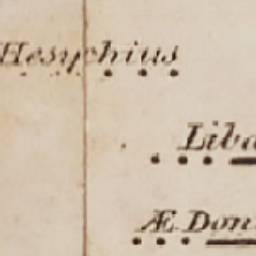 Hesychius
Liba
Æ Don